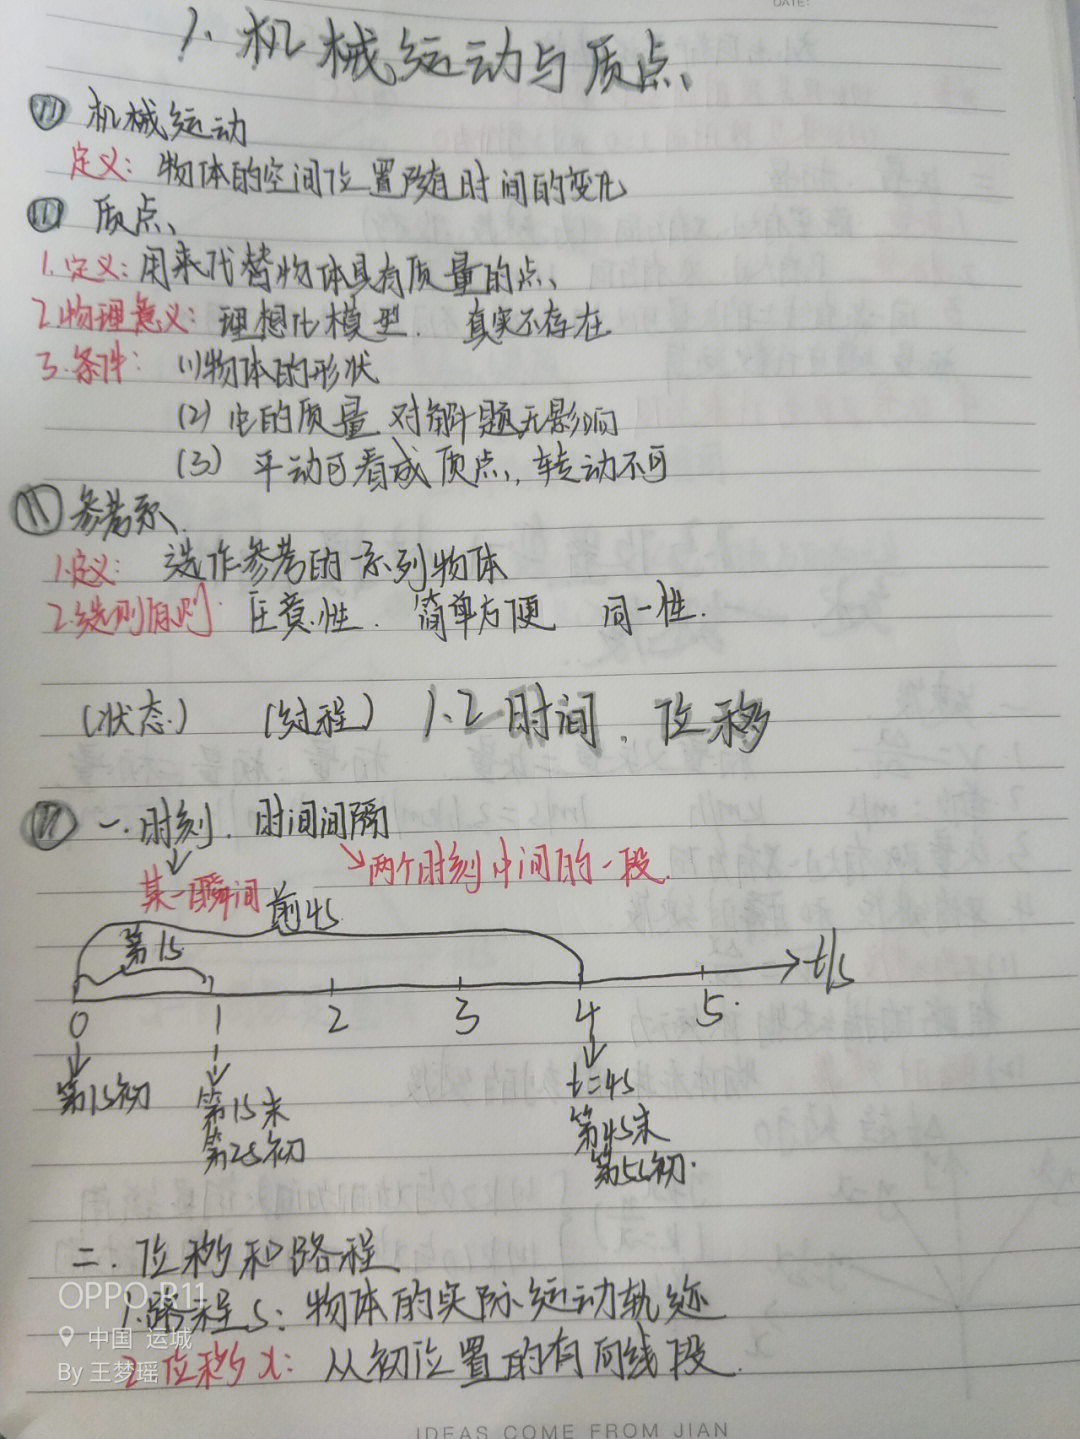 DATE:
1. 机械运动与质点、
机械运动
定义: 物体的空间位置随时间的变化
质点、
1.定义: 用来代替物体具有质量的点、
2.物理意义: 理想化模型. 真实不存在
3.条件: (1)物体的形状
(2) 的质量 对解题无影响
(3) 平动可看成质点, 转动不可
参考系、
1.定义: 选作参考的一系列物体
2.选则原则: 任意性. 简单方便 同一性.
(状态) (过程) 1.2时间. 位移
一.时刻. 时间间隔
某一瞬间 两个时刻中间的一段.
前4s
第1s
t/s
0 1 2 3 4 5.
第1s初 第1s末 t=4s
第2s初 第4s末
第5s初.
二.位移和路程
1.路程s: 物体的实际运动轨迹
2.位移x: 从初位置的有向线段.
OPPO R11
中国 运城
By 王梦瑶
IDEAS COME FROM JIAN